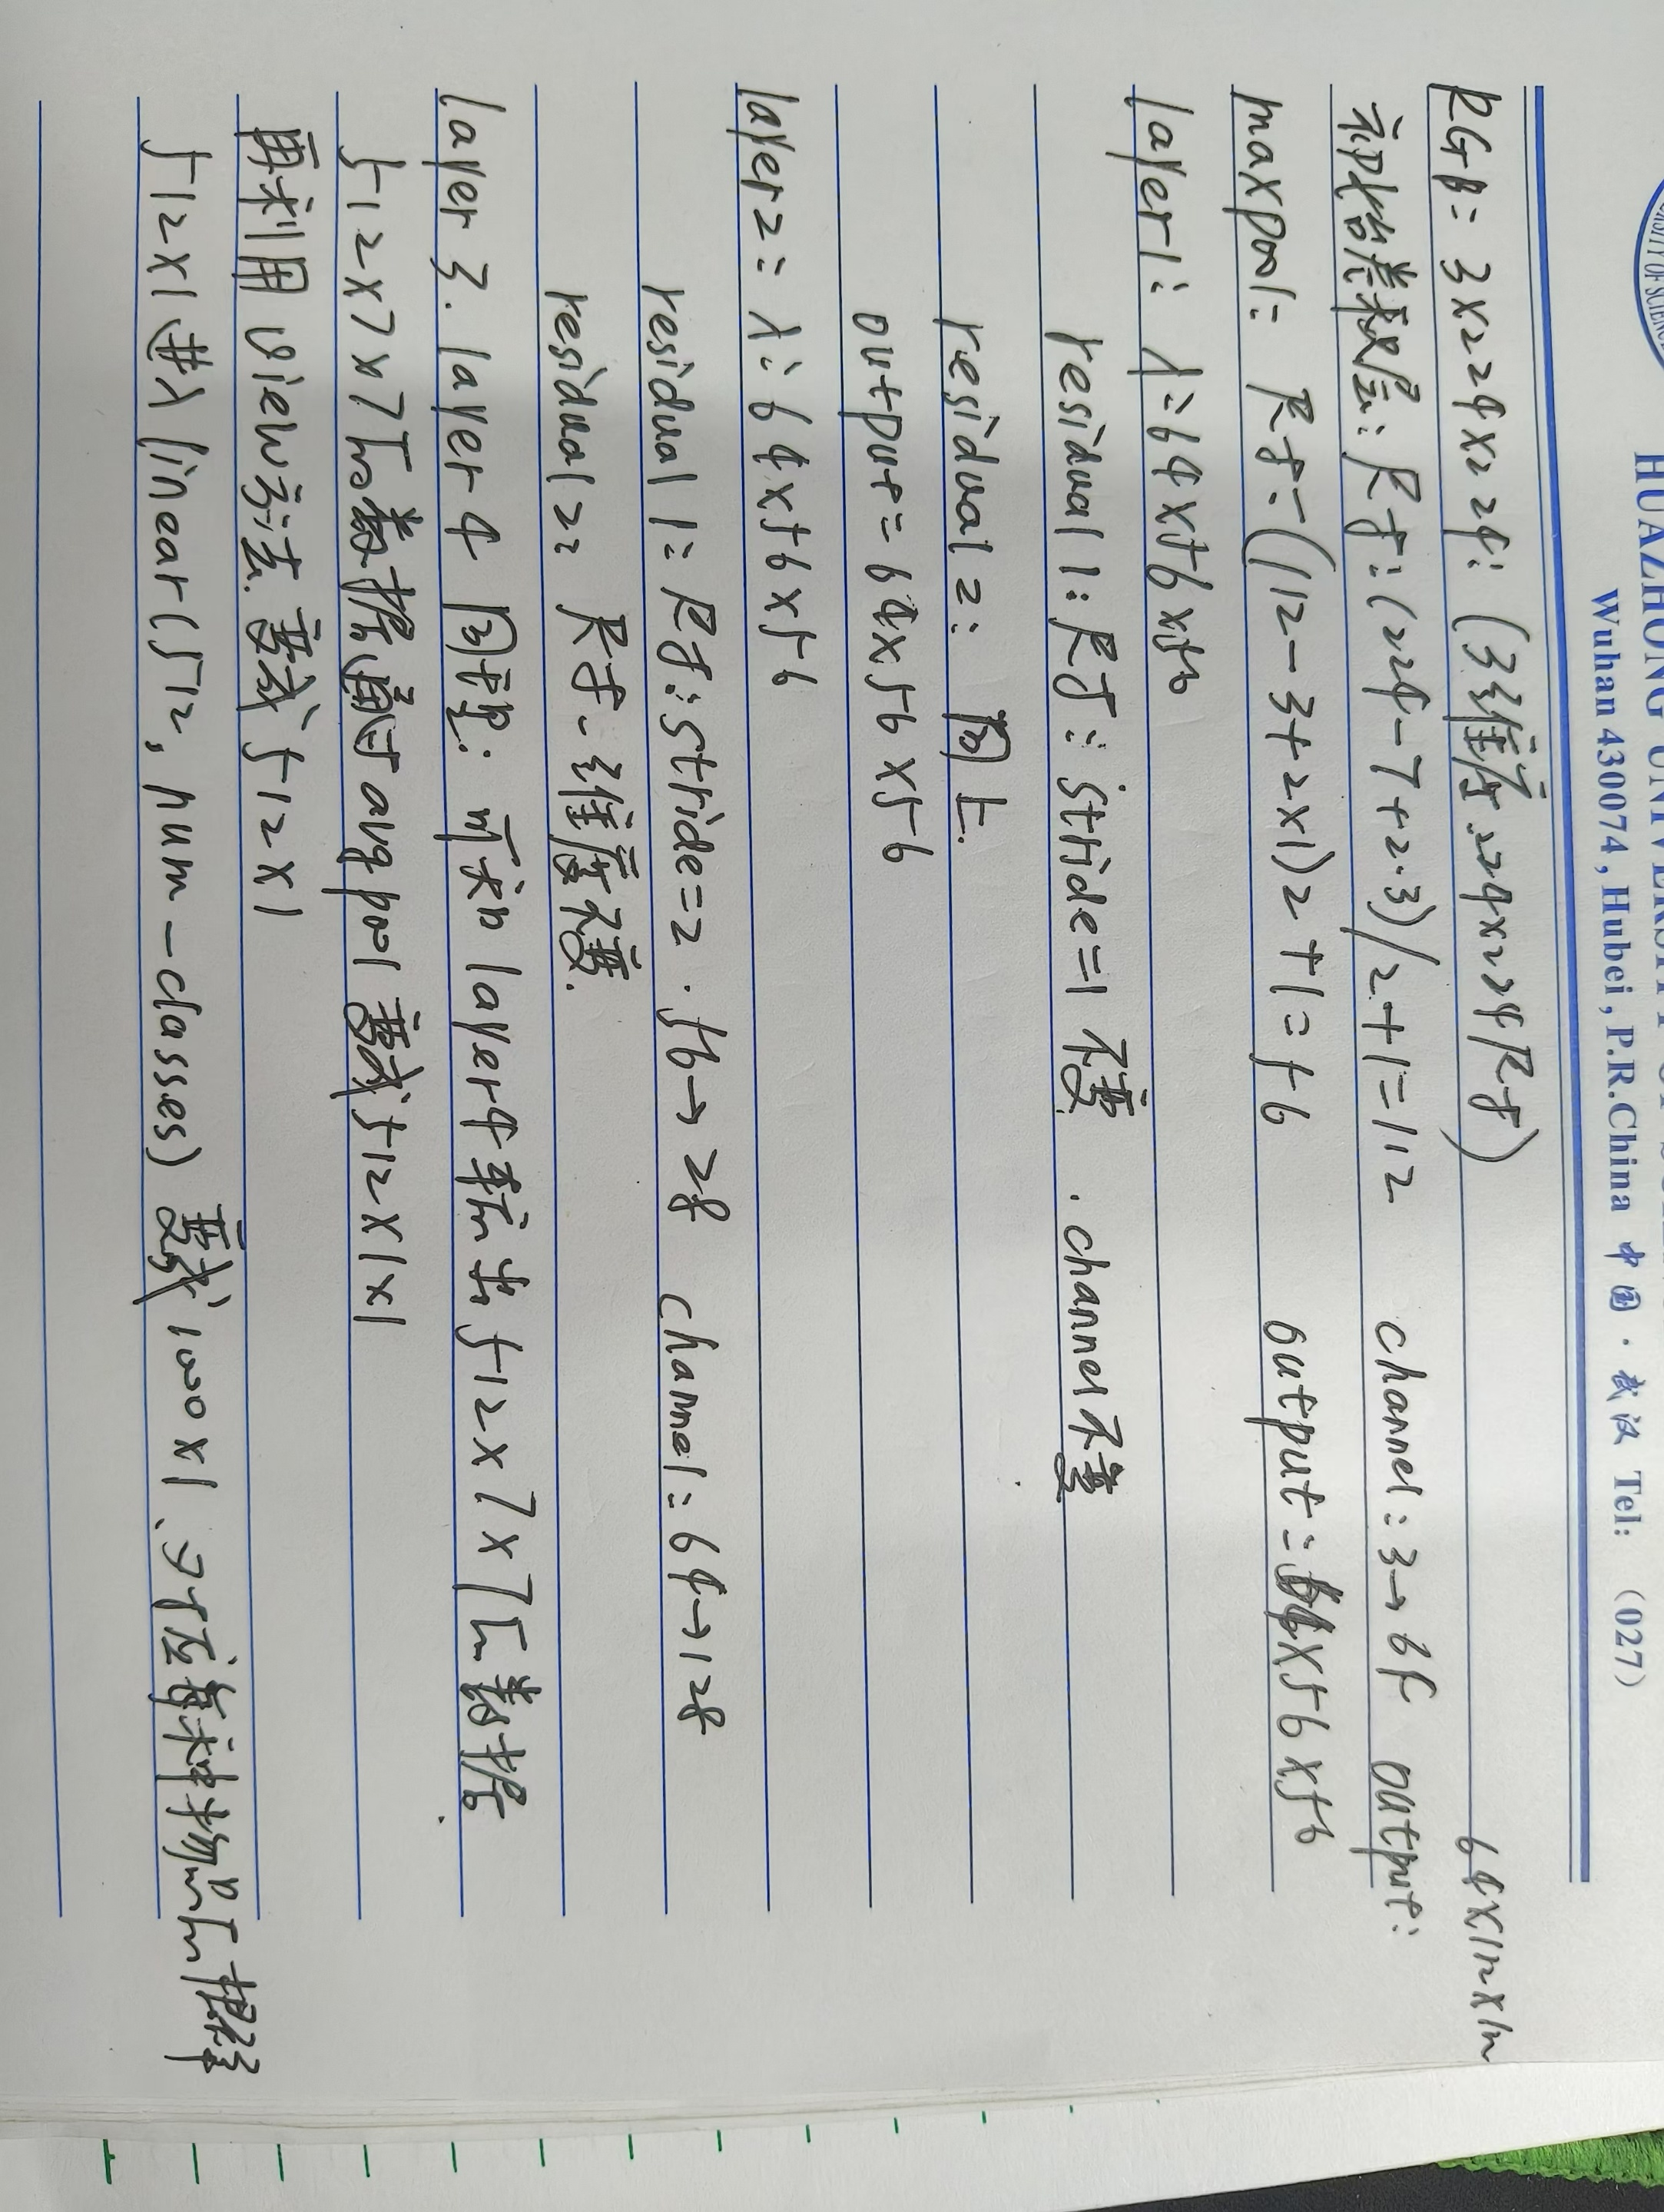 HUAZHONG UNIVERSITY OF SCIENCE
Wuhan 430074, Hubei, P.R.China 中国·武汉 Tel: (027)
RGB: 3x224x224: (3维度.224x224尺寸)
初始卷积层: 尺寸:(224-7+2.3)/2+1=112 channel:3→64 output: 64x112x112
maxpool: 尺寸-(112-3+2x1)2+1=56 output:64x56x56
layer1: λ:64x56x56
residual1: 尺寸: stride=1 不变. channel不变
residual2: 同上.
output=64x56x56
layer2: λ:64x56x56
residual1: 尺寸:stride=2 . 56→28 channel:64→128
residual2: 尺寸.维度不变.
layer3.layer4 同理: 可知layer4输出512x7x7的数据.
512x7x7的数据通过avgpool变成512x1x1
再利用view方法.变成512x1
512x1进入linear(512, num-classes)变成1000x1、对应每种物品的概率